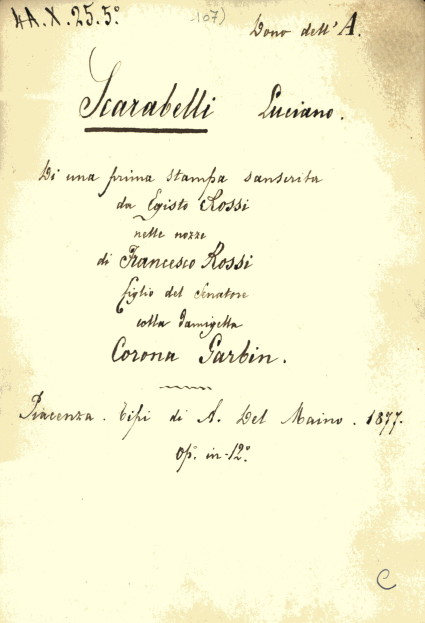 4A.X.25.5°
107)
Dono dell'A.
Scarabelli Luciano.
Di una prima stampa sanscrita
da Egisto Rossi
nelle nozze
di Francesco Rossi
figlio del Senatore
colla Damigella
Corona Garbin.
Piacenza. Tipi di A. Del Maino. 1877.
op°. in-12°.
C